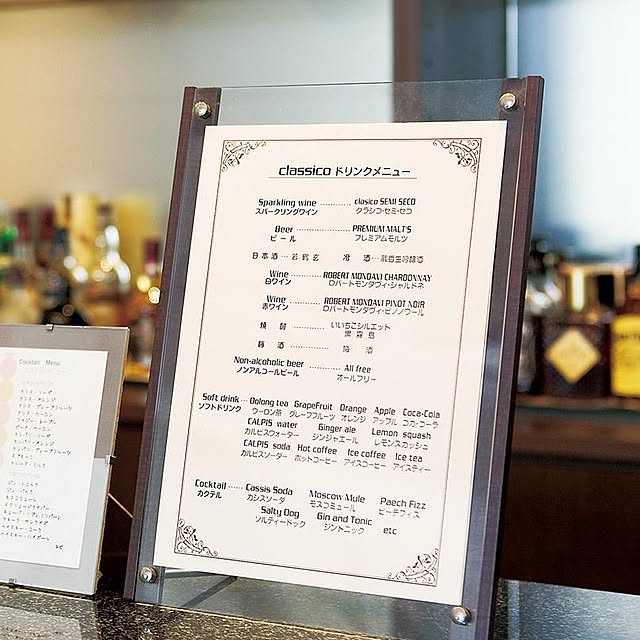 classico ドリンクメニュー
Sparkling wine ………… clasico SEMI SECO
スパークリングワイン クラシコ・セミ・セコ
Beer ………… PREMIUM MALT'S
ビール プレミアムモルツ
日本酒…
冷 酒…
Wine ………… ROBERT MONDAVI CHARDONNAY
白ワイン ロバートモンダヴィ・シャルドネ
Wine ………… ROBERT MONDAVI PINOT NOIR
赤ワイン ロバートモンダヴィ・ピノノワール
焼 酎 ………… いいちこシルエット
黒霧島
梅 酒 ………… 梅 酒
Non-alcoholic beer ………… All free
ノンアルコールビール オールフリー
Soft drink … Oolong tea GrapeFruit Orange Apple Coca-Cola
ソフトドリンク ウーロン茶 グレープフルーツ オレンジ アップル コカ・コーラ
CALPIS water Ginger ale Lemon squash
カルピスウォーター ジンジャエール レモンスカッシュ
CALPIS soda Hot coffee Ice coffee Ice tea
カルピスソーダー ホットコーヒー アイスコーヒー アイスティー
Cocktail …… Cassis Soda Moscow Mule Paech Fizz
カクテル カシスソーダ モスコミュール ピーチフィズ
Salty Dog Gin and Tonic etc
ソルティードック ジントニック
Cocktail Menu